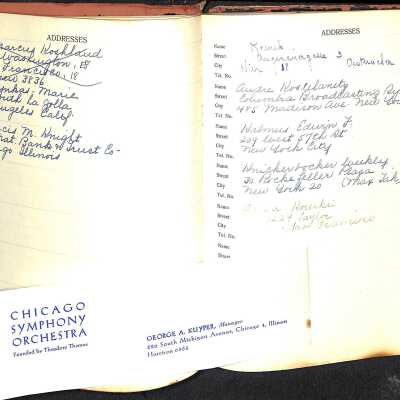 ADDRESSES
Marcus Koshland
Washington, 18
Francisco, 18
3836
Marie
La Jolla
Angeles Calif.
cis M. Knight
Nat. Bank & Trust Co-
go Illinois
ADDRESSES
Name Krenek
Street 3 Australia
City Wien, 18
Tel. No.
Name Andre Kostelanetz
Street Columbia Broadcasting Sy
City 485 Madison Ave. New Yo
Tel. No.
Name Kalmus Edwin F
Street 209 West 57th St
City New York City
Tel. No.
Name Knickerbocker Weekly
Street 30 Rockefeller Plaza
City New York 20 (Max Tak)
Tel. No.
Name
Street Taylor
City San Francisco
Tel. No.
Name
Street
CHICAGO
SYMPHONY
ORCHESTRA
Founded by Theodore Thomas
GEORGE A. KUYPER, Manager
220 South Michigan Avenue, Chicago 4, Illinois
Harrison 0362